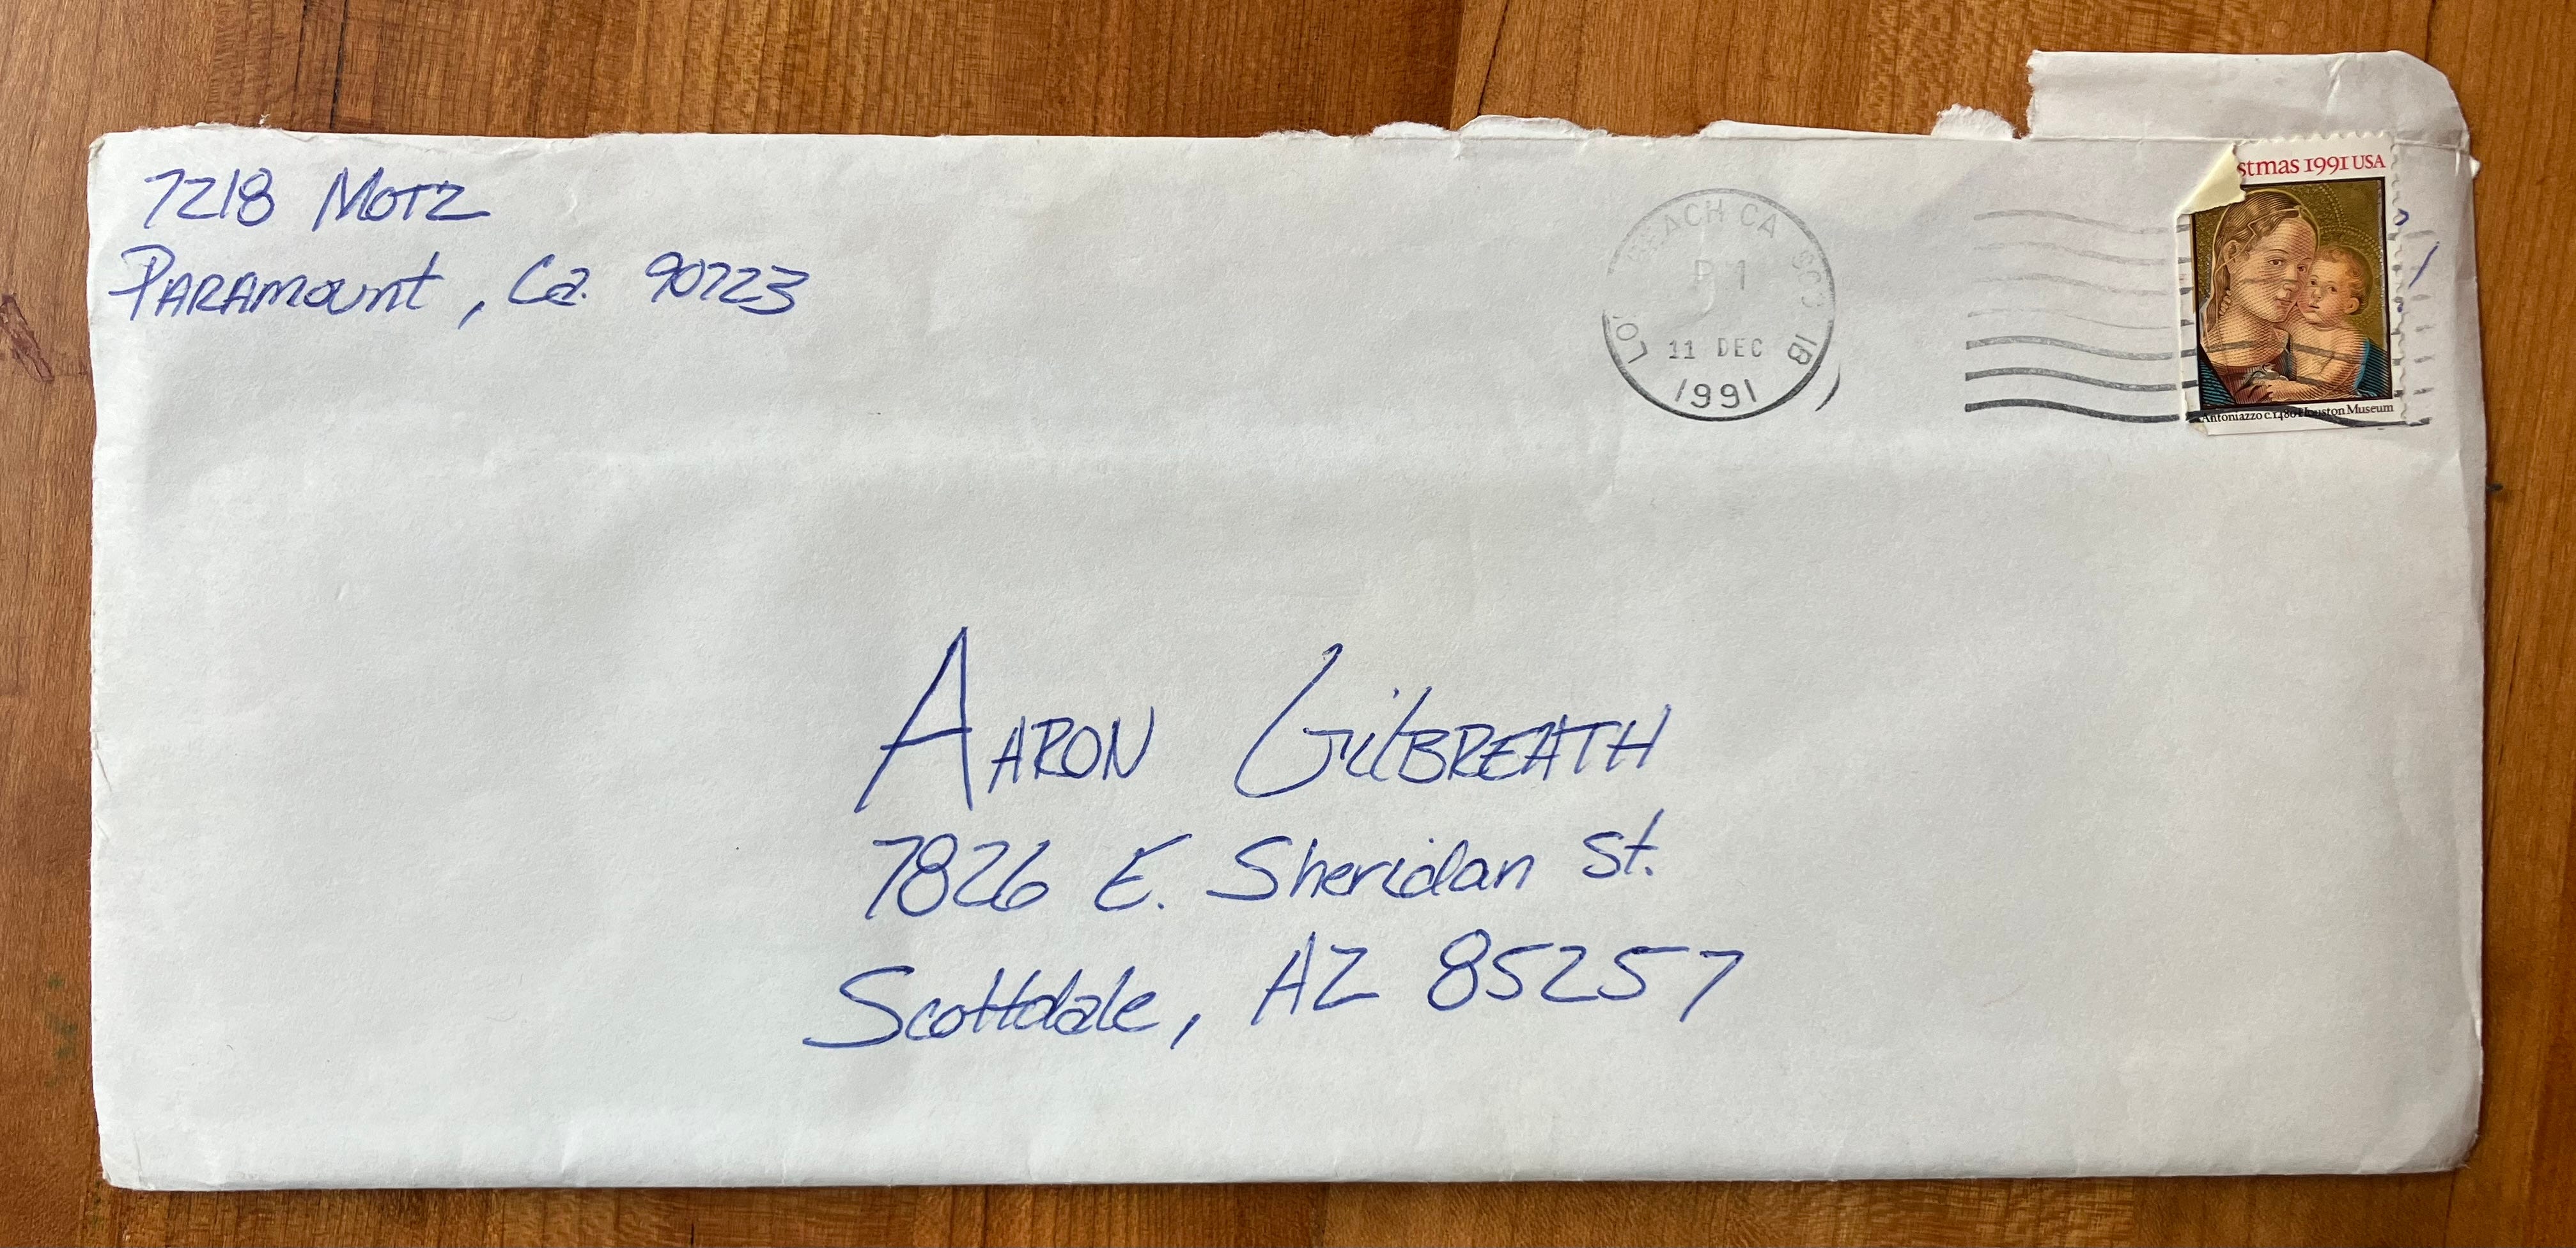 7218 Motz
Paramount, Ca. 90723
BEACH CA
P 1
11 DEC
1991
stmas 1991 USA
Antoniazzo c.1480 Houston Museum
Aaron Gilbreath
7826 E. Sheridan St.
Scottdale, AZ 85257